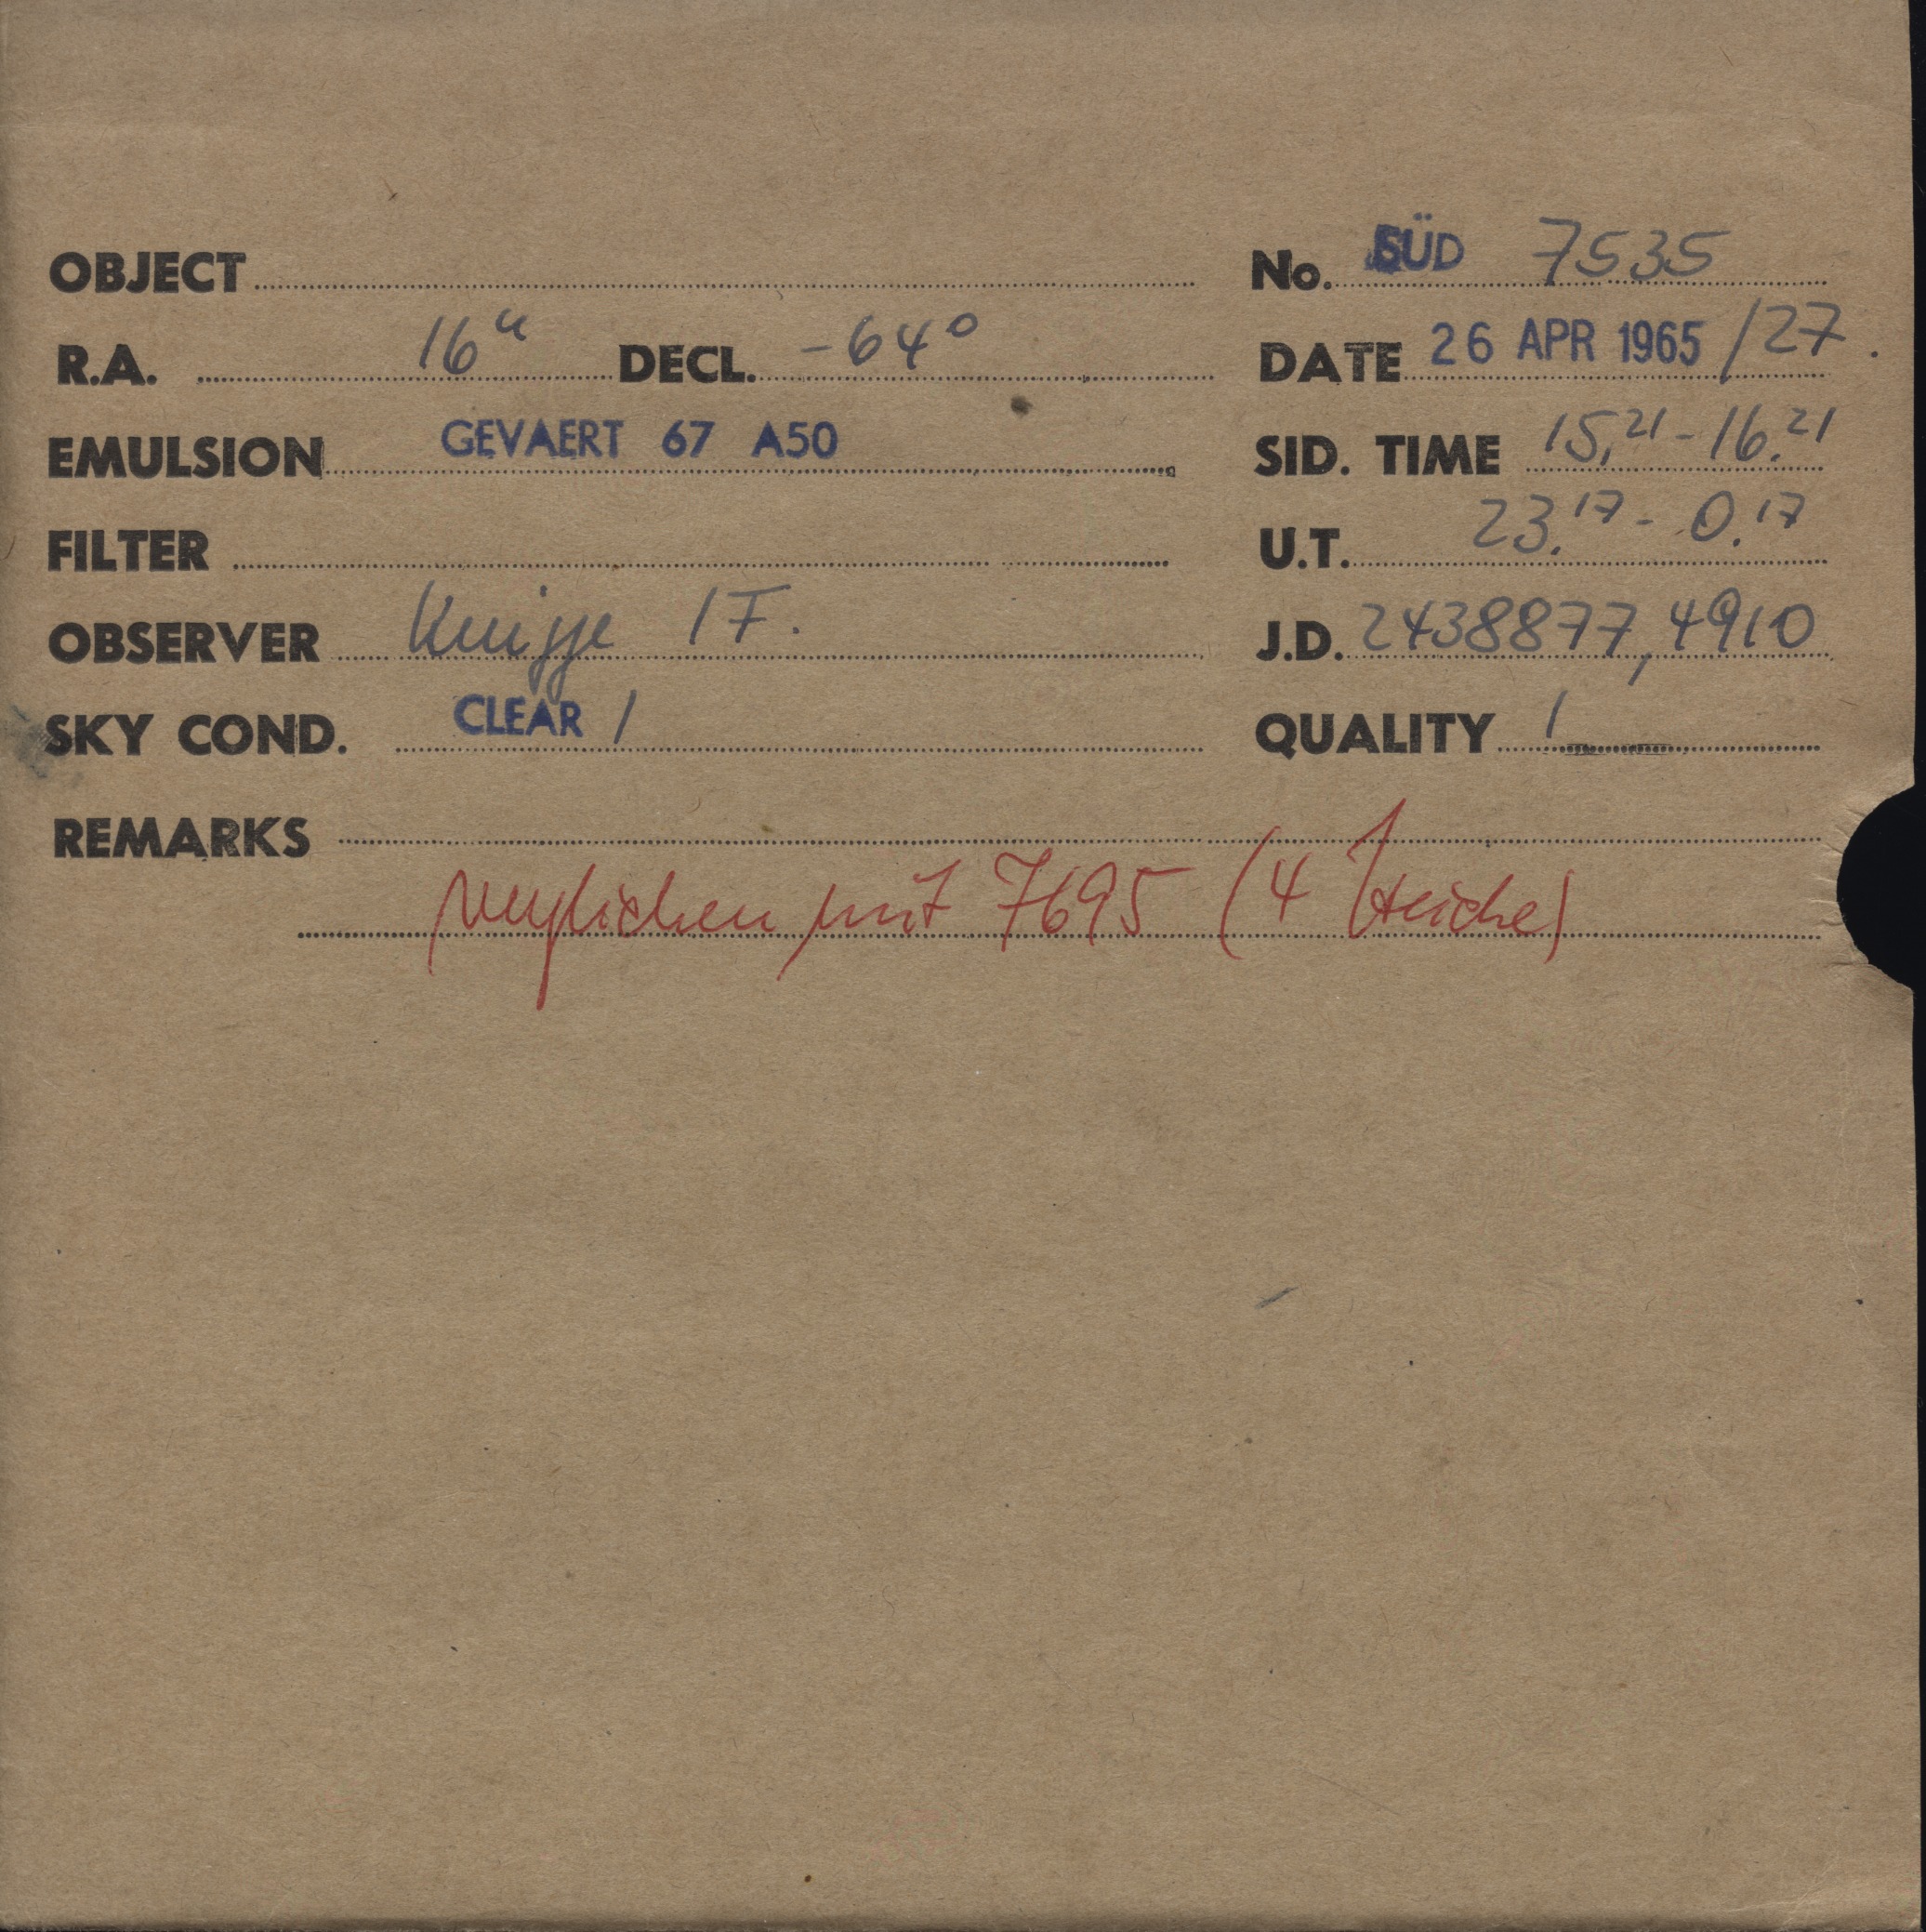 OBJECT No. SÜD 7535
R.A. 16ʰ DECL. -64° DATE 26 APR 1965 /27.
EMULSION GEVAERT 67 A50 SID. TIME 15.21 - 16.21
FILTER U.T. 23.17 - 0.17
OBSERVER Knigge J.D. 2438877,4910
SKY COND. CLEAR 1 QUALITY 1
REMARKS
verglichen mit 7695 (4